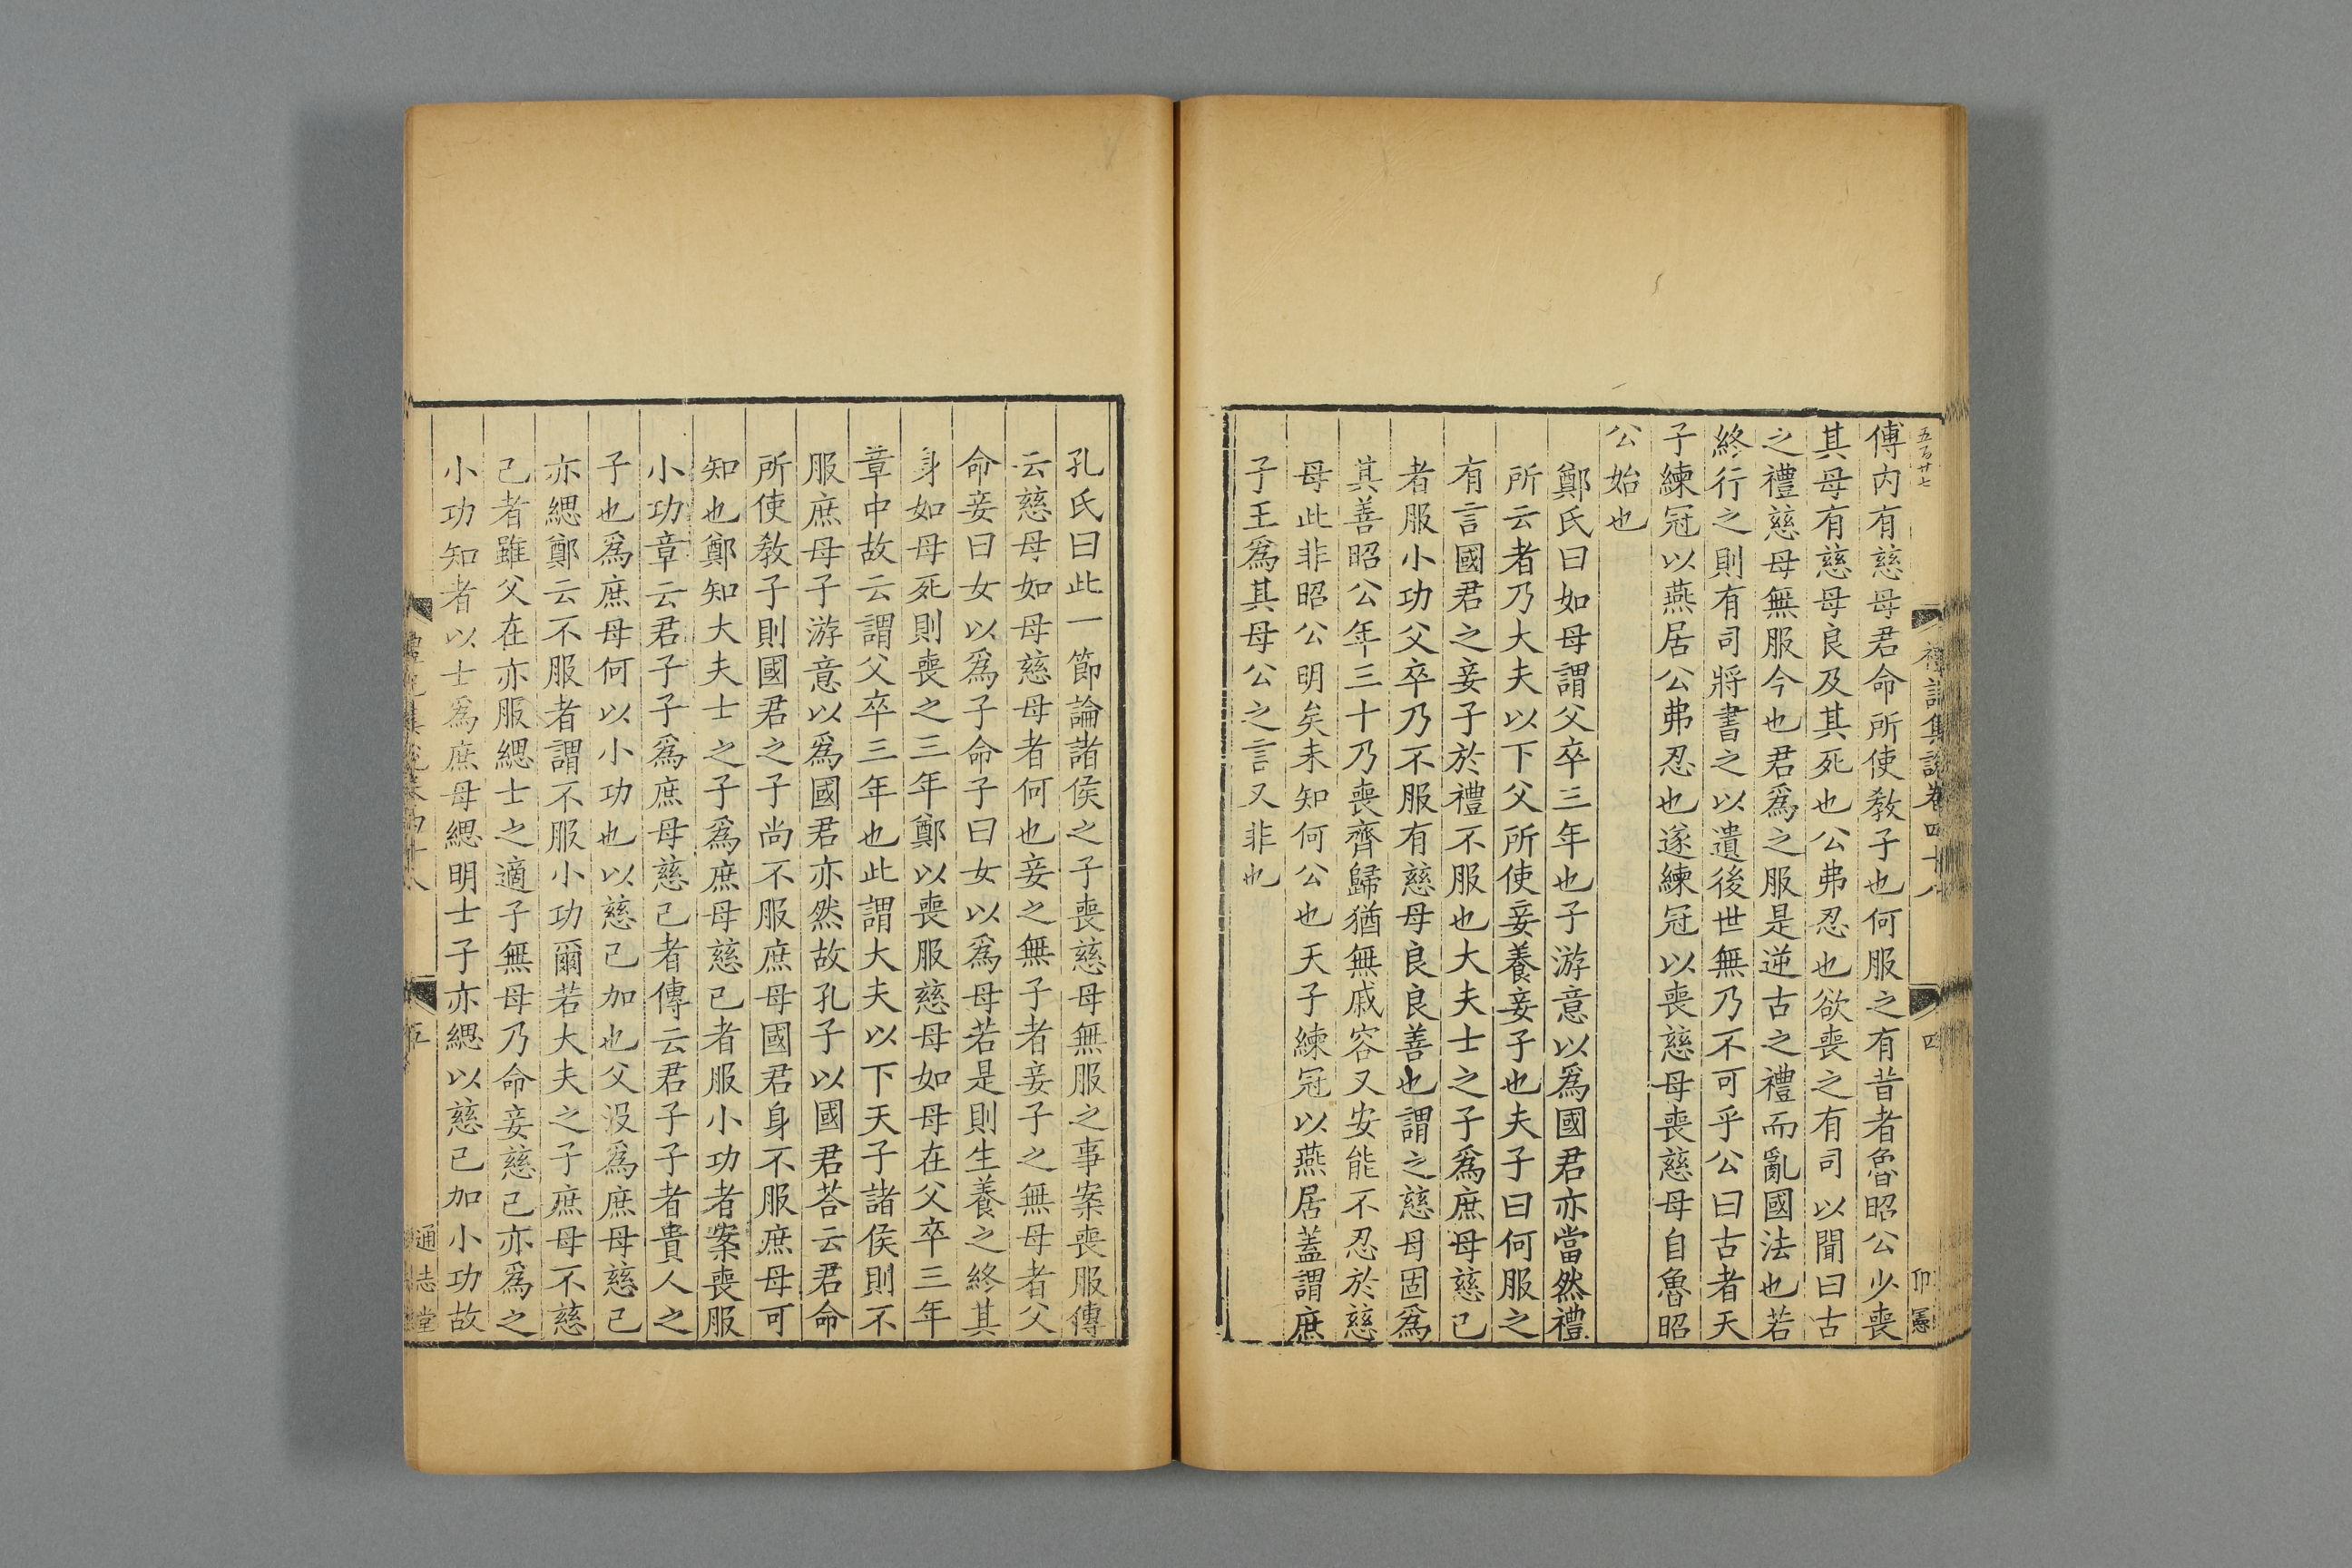 五百廿七
禮記集說卷四十八
四
傅內有慈母君命所使敎子也何服之有昔者魯昭公少喪
其母有慈母良及其死也公弗忍也欲喪之有司以聞曰古
之禮慈母無服今也君爲之服是逆古之禮而亂國法也若
終行之則有司將書之以遺後世無乃不可乎公曰古者天
子練冠以燕居公弗忍也遂練冠以喪慈母喪慈母自魯昭
公始也
鄭氏曰如母謂父卒三年也子游意以爲國君亦當然禮
所云者乃大夫以下父所使妾養妾子也夫子曰何服之
有言國君之妾子於禮不服也大夫士之子爲庶母慈己
者服小功父卒乃不服有慈母良良善也謂之慈母固爲
其善昭公年三十乃喪齊歸猶無戚容又安能不忍於慈
母此非昭公明矣未知何公也天子練冠以燕居蓋謂庶
子王爲其母公之言又非也
孔氏曰此一節論諸侯之子喪慈母無服之事案喪服傳
云慈母如母慈母者何也妾之無子者妾子之無母者父
命妾曰女以爲子命子曰女以爲母若是則生養之終其
身如母死則喪之三年鄭以喪服慈母如母在父卒三年
章中故云謂父卒三年也此謂大夫以下天子諸侯則不
服庶母子游意以爲國君亦然故孔子以國君荅云君命
所使敎子則國君之子尚不服庶母國君身不服庶母可
知也鄭知大夫士之子爲庶母慈己者服小功者案喪服
小功章云君子子爲庶母慈己者傳云君子子者貴人之
子也爲庶母何以小功也以慈己加也父沒爲庶母慈己
亦緦鄭云不服者謂不服小功爾若大夫之子庶母不慈
己者雖父在亦服緦士之適子無母乃命妾慈己亦爲之
小功知者以士爲庶母緦明士子亦緦以慈己加小功故
五
通志堂